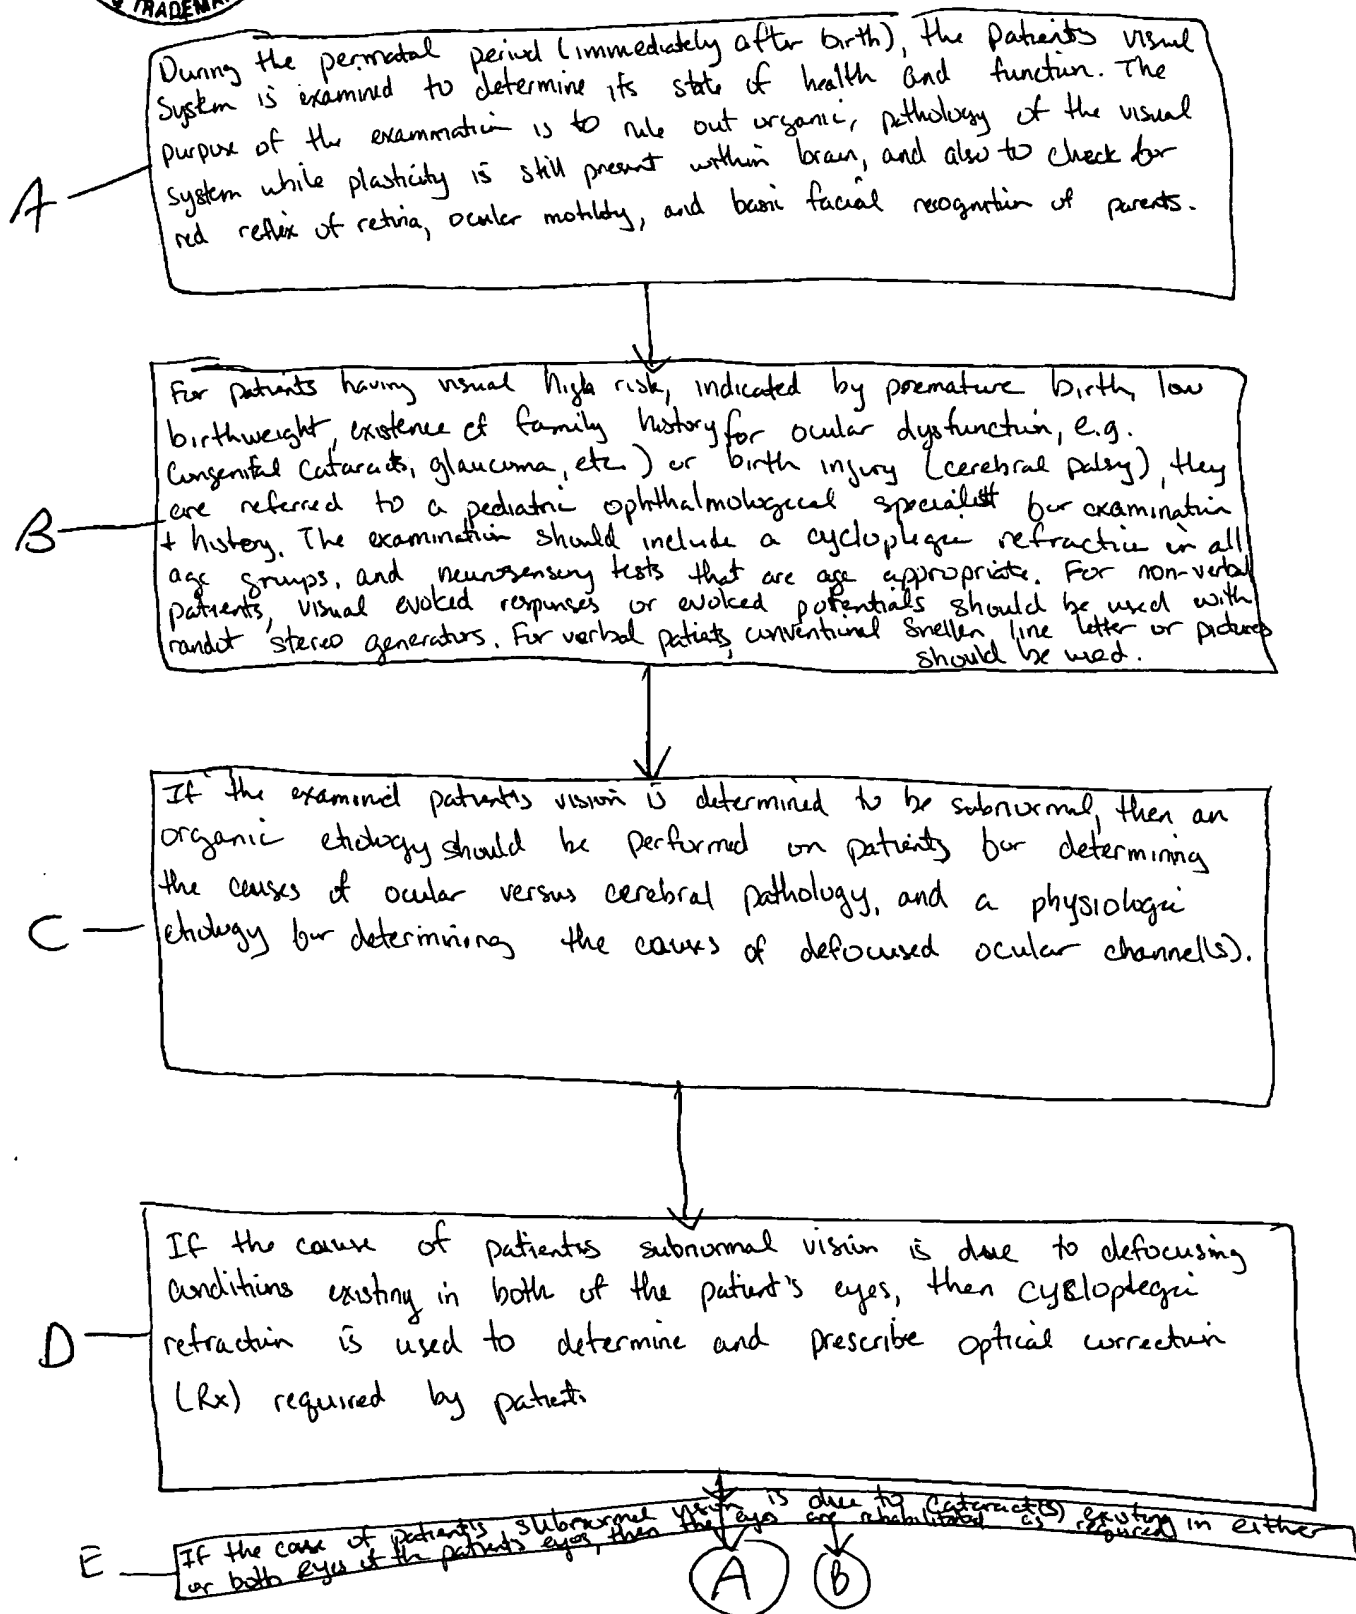 & TRADEMA
During the perinatal period (immediately after birth), the patient's visual
System is examined to determine its state of health and function. The
purpose of the examination is to rule out organic, pathology of the visual
system while plasticity is still present within brain, and also to check for
red reflex of retina, ocular motility, and basic facial recognition of parents.
A
For patients having visual high risk, indicated by premature birth, low
birthweight, existence of family history for ocular dysfunction, e.g.
Congenital Cataracts, glaucoma, etc.) or birth injury (cerebral palsy), they
are referred to a pediatric ophthalmological specialist for examination
+ history. The examination should include a cycloplegic refraction in all
age groups, and neurosensory tests that are age appropriate. For non-verbal
patients, visual evoked responses or evoked potentials should be used with
randot stereo generators. For verbal patients, conventional Snellen line letter or pictures
should be used.
B
If the examined patient's vision is determined to be subnormal, then an
organic etiology should be performed on patients for determining
the causes of ocular versus cerebral pathology, and a physiologic
etiology for determining the causes of defocused ocular channel(s).
C
If the cause of patient's subnormal vision is due to defocusing
conditions existing in both of the patient's eyes, then cycloplegic
refraction is used to determine and prescribe optical correction
(Rx) required by patients
D
If the case of patient's subnormal vision is due to cataract(s) existing in either
or both eyes of the patient's eyes, then the eyes are rehabilitated as required
E
A
B